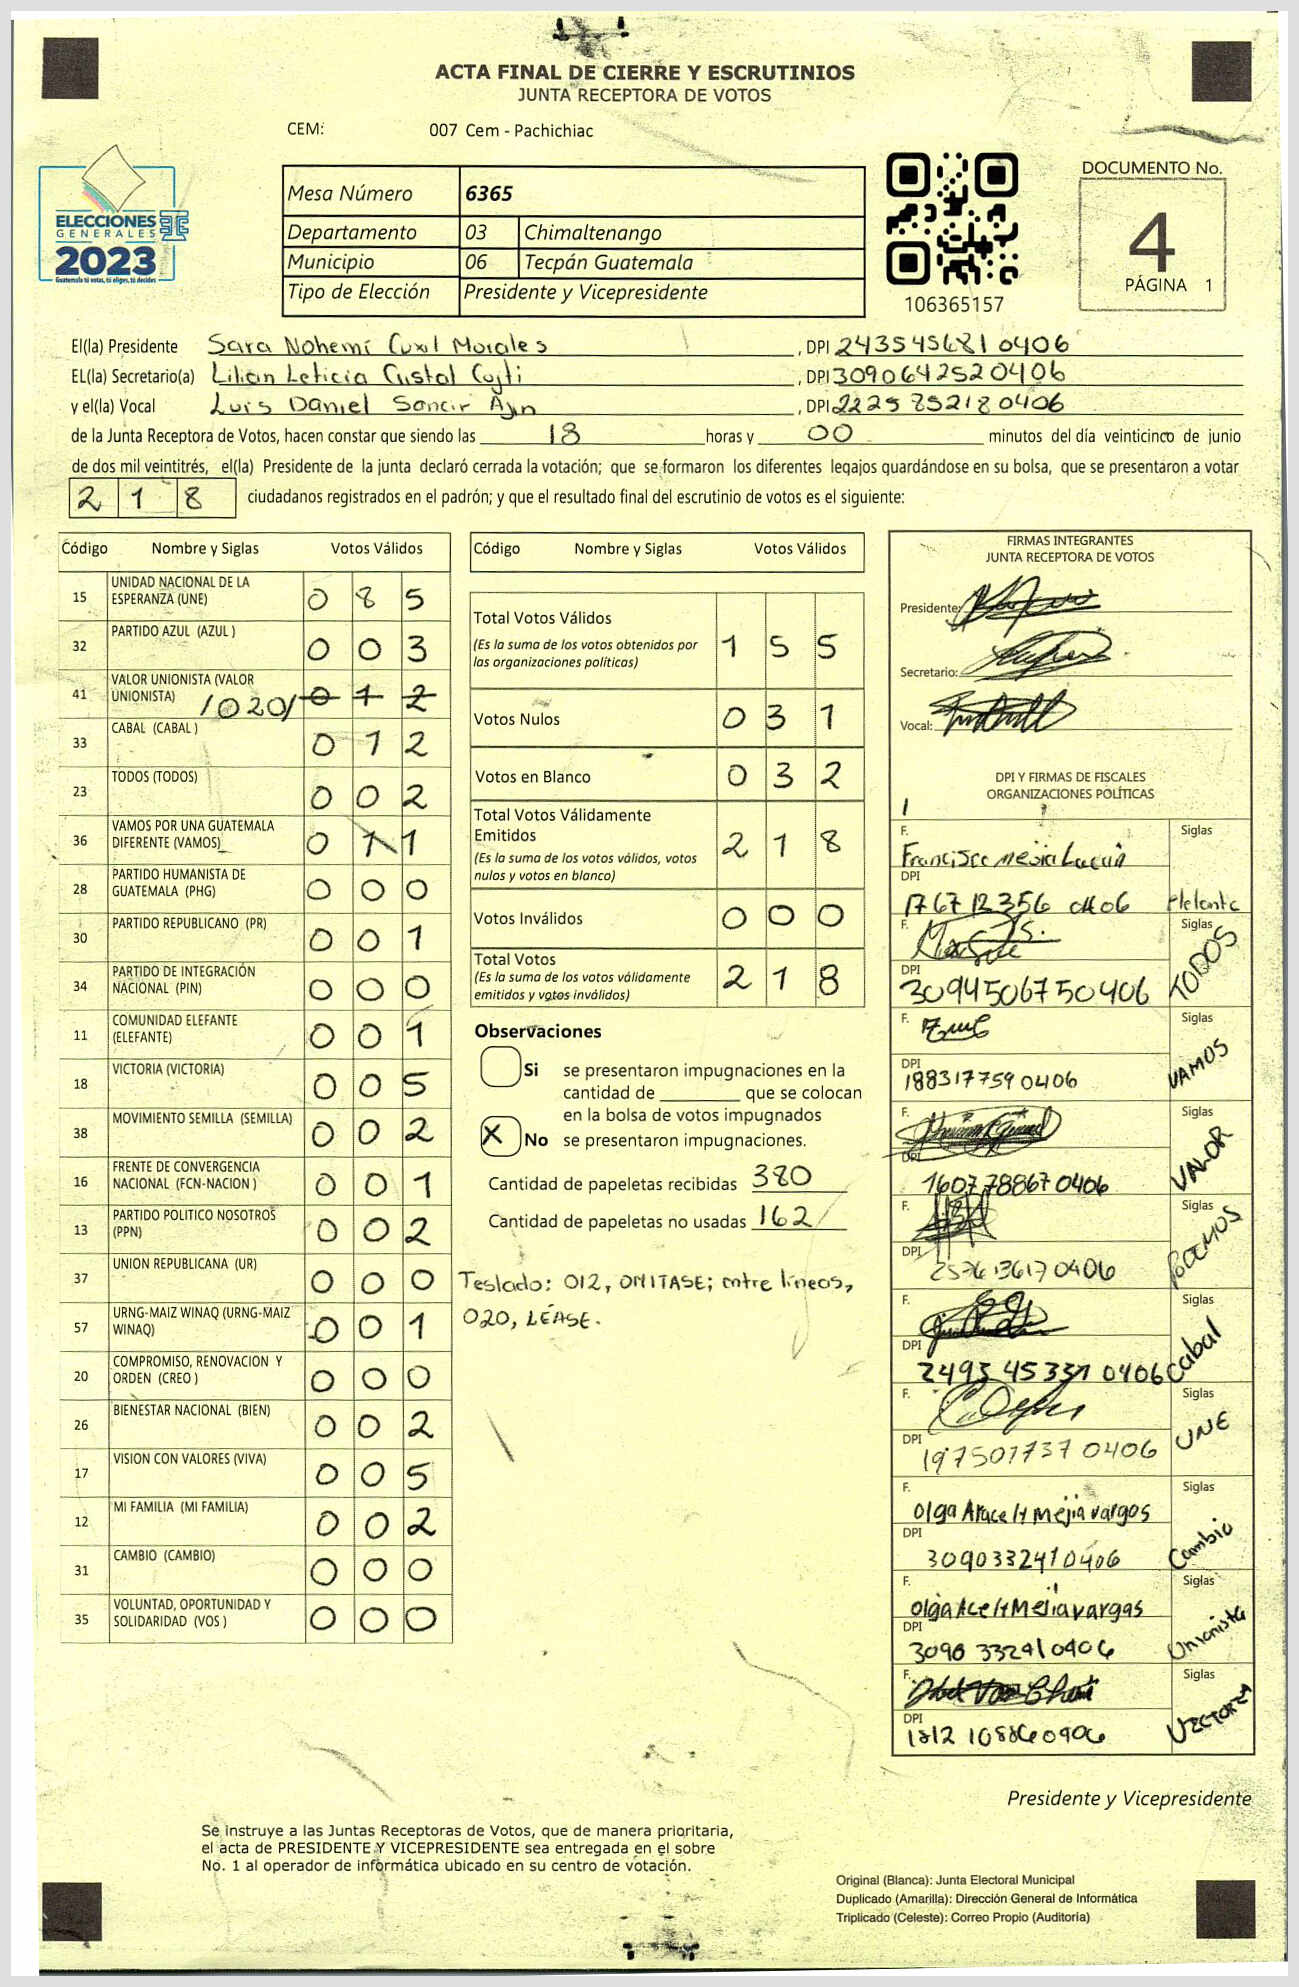 ACTA FINAL DE CIERRE Y ESCRUTINIOS
JUNTA RECEPTORA DE VOTOS
CEM: 007 Cem - Pachichiac
ELECCIONES
GENERALES
2023
Guatemala tú votas, tú eliges, tú decides
Mesa Número 6365
Departamento 03 Chimaltenango
Municipio 06 Tecpán Guatemala
Tipo de Elección Presidente y Vicepresidente
106365157
DOCUMENTO No.
4
PÁGINA 1
El(la) Presidente Sara Nohemí Cuxil Morales, DPI 2435456810406
EL(la) Secretario(a) Lilian Leticia Custal Cojti, DPI 3090642520406
y el(la) Vocal Luis Daniel Sancir Ajin, DPI 2225852180406
de la Junta Receptora de Votos, hacen constar que siendo las 18 horas y 00 minutos del día veinticinco de junio
de dos mil veintitrés, el(la) Presidente de la junta declaró cerrada la votación; que se formaron los diferentes legajos guardándose en su bolsa, que se presentaron a votar
2 1 8 ciudadanos registrados en el padrón; y que el resultado final del escrutinio de votos es el siguiente:
Código Nombre y Siglas Votos Válidos
15 UNIDAD NACIONAL DE LA ESPERANZA (UNE) 0 8 5
32 PARTIDO AZUL (AZUL ) 0 0 3
41 VALOR UNIONISTA (VALOR UNIONISTA) /020/ 0 1 2
33 CABAL (CABAL ) 0 1 2
23 TODOS (TODOS) 0 0 2
36 VAMOS POR UNA GUATEMALA DIFERENTE (VAMOS) 0 1 1
28 PARTIDO HUMANISTA DE GUATEMALA (PHG) 0 0 0
30 PARTIDO REPUBLICANO (PR) 0 0 1
34 PARTIDO DE INTEGRACIÓN NACIONAL (PIN) 0 0 0
11 COMUNIDAD ELEFANTE (ELEFANTE) 0 0 1
18 VICTORIA (VICTORIA) 0 0 5
38 MOVIMIENTO SEMILLA (SEMILLA) 0 0 2
16 FRENTE DE CONVERGENCIA NACIONAL (FCN-NACION ) 0 0 1
13 PARTIDO POLITICO NOSOTROS (PPN) 0 0 2
37 UNION REPUBLICANA (UR) 0 0 0
57 URNG-MAIZ WINAQ (URNG-MAIZ WINAQ) 0 0 1
20 COMPROMISO, RENOVACION Y ORDEN (CREO ) 0 0 0
26 BIENESTAR NACIONAL (BIEN) 0 0 2
17 VISION CON VALORES (VIVA) 0 0 5
12 MI FAMILIA (MI FAMILIA) 0 0 2
31 CAMBIO (CAMBIO) 0 0 0
35 VOLUNTAD, OPORTUNIDAD Y SOLIDARIDAD (VOS ) 0 0 0
Código Nombre y Siglas Votos Válidos
Total Votos Válidos 1 5 5
(Es la suma de los votos obtenidos por
las organizaciones políticas)
Votos Nulos 0 3 1
Votos en Blanco 0 3 2
Total Votos Válidamente
Emitidos 2 1 8
(Es la suma de los votos válidos, votos
nulos y votos en blanco)
Votos Inválidos 0 0 0
Total Votos 2 1 8
(Es la suma de los votos válidamente
emitidos y votos inválidos)
Observaciones
Si se presentaron impugnaciones en la
cantidad de ________ que se colocan
en la bolsa de votos impugnados
X No se presentaron impugnaciones.
Cantidad de papeletas recibidas 380
Cantidad de papeletas no usadas 162
Teslado: 012, OMITASE; entre líneas,
020, LÉASE.
FIRMAS INTEGRANTES
JUNTA RECEPTORA DE VOTOS
Presidente:
Secretario:
Vocal:
DPI Y FIRMAS DE FISCALES
ORGANIZACIONES POLÍTICAS
F. Francisco Mejia Siglas
DPI 1767 12356 0406
F. Siglas TODOS
DPI 3094506750406
F. Siglas VAMOS
DPI 1883177590406
F. Siglas VALOR
DPI 1607788670406
F. Siglas PODEMOS
DPI 2576136170406
F. Siglas Cabal
DPI 2493 45331 0406
F. Siglas UNE
DPI 1975017370406
F. Olga Aracely Mejia vargas Siglas Cambio
DPI 3090332410406
F. Siglas Unionista
DPI 3090 332410406
F. Siglas VICTORIA
DPI 1812 108860406
Presidente y Vicepresidente
Se instruye a las Juntas Receptoras de Votos, que de manera prioritaria,
el acta de PRESIDENTE Y VICEPRESIDENTE sea entregada en el sobre
No. 1 al operador de informática ubicado en su centro de votación.
Original (Blanca): Junta Electoral Municipal
Duplicado (Amarilla): Dirección General de Informática
Triplicado (Celeste): Correo Propio (Auditoría)